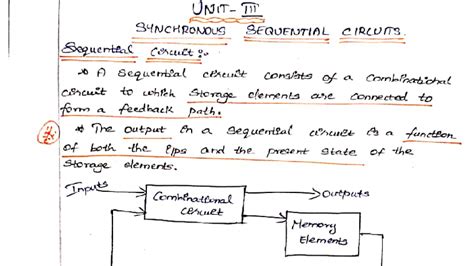 UNIT-III
SYNCHRONOUS SEQUENTIAL CIRCUITS.
Sequential Circuit:-
* A sequential circuit consists of a Combinational
circuit to which storage elements are connected to
form a feedback path.
* The output in a sequential circuit is a function
of both the i/ps and the present state of the
storage elements.
Inputs
Combinational
circuit
Outputs
Memory
Elements